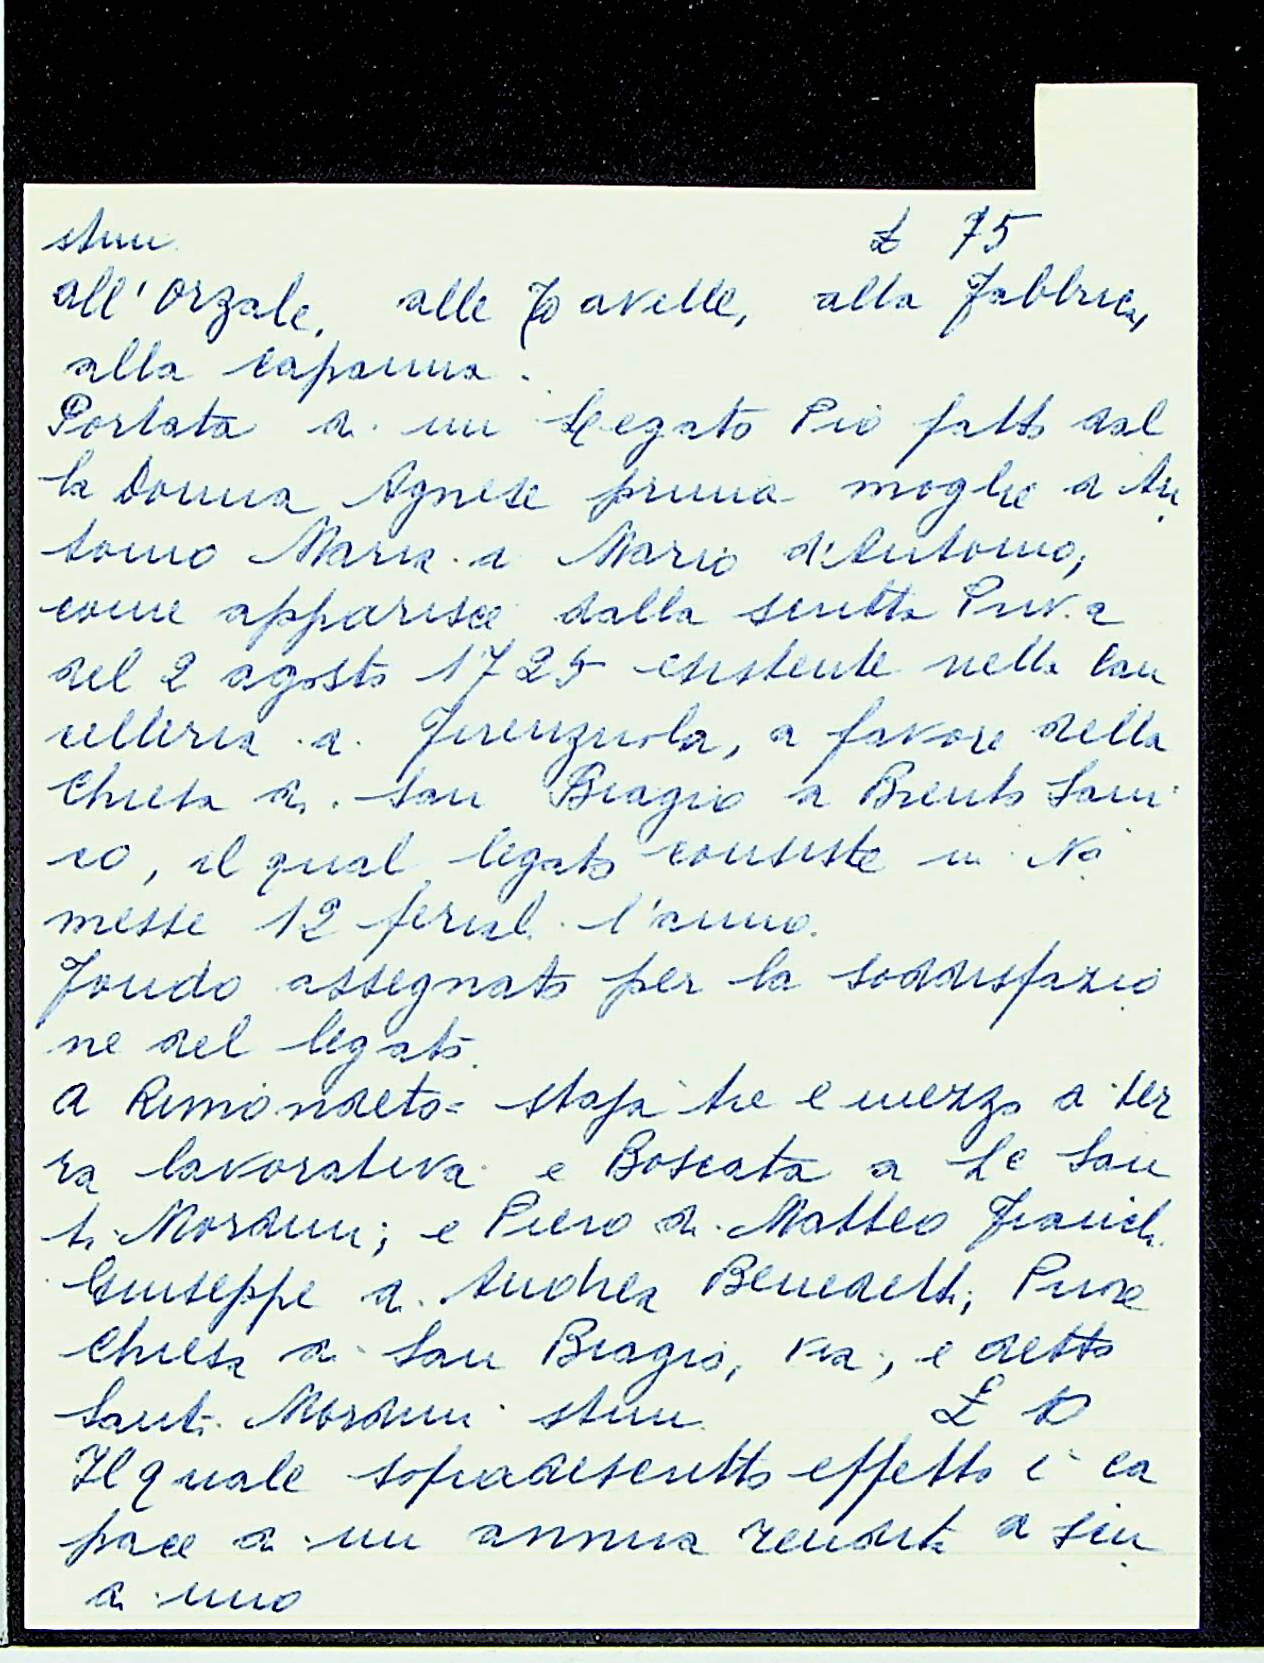 stim. £ 75
all'Orzale, alle Tavelle, alla Fabbrica,
alla capanna.
Portata di un Legato Pio fatto dal
la Donna Agnese prima moglie di An
tonio Maria di Mario d'Antonio,
come apparisce dalla scritta Priv.a
del 2 agosto 1725 esistente nella Can
celleria di Firenzuola, a favore della
Chiesa di San Biagio a Brento Sani
co, il qual legato consiste in No
messe 12 feriali l'anno.
Fondo assegnato per la soddisfazio
ne del legato.
A Rimondeto= staja tre e mezzo di ter
ra lavorativa e Boscata a Lc San
ti Mordini; e Piero di Matteo Franchi
Giuseppe di Andrea Benedetti,
Chiesa di San Biagio, via, e detto
Santi Mordini stim. £
Il quale sopradescritto effetto è ca
pace di un annua rendita di scu
di uno